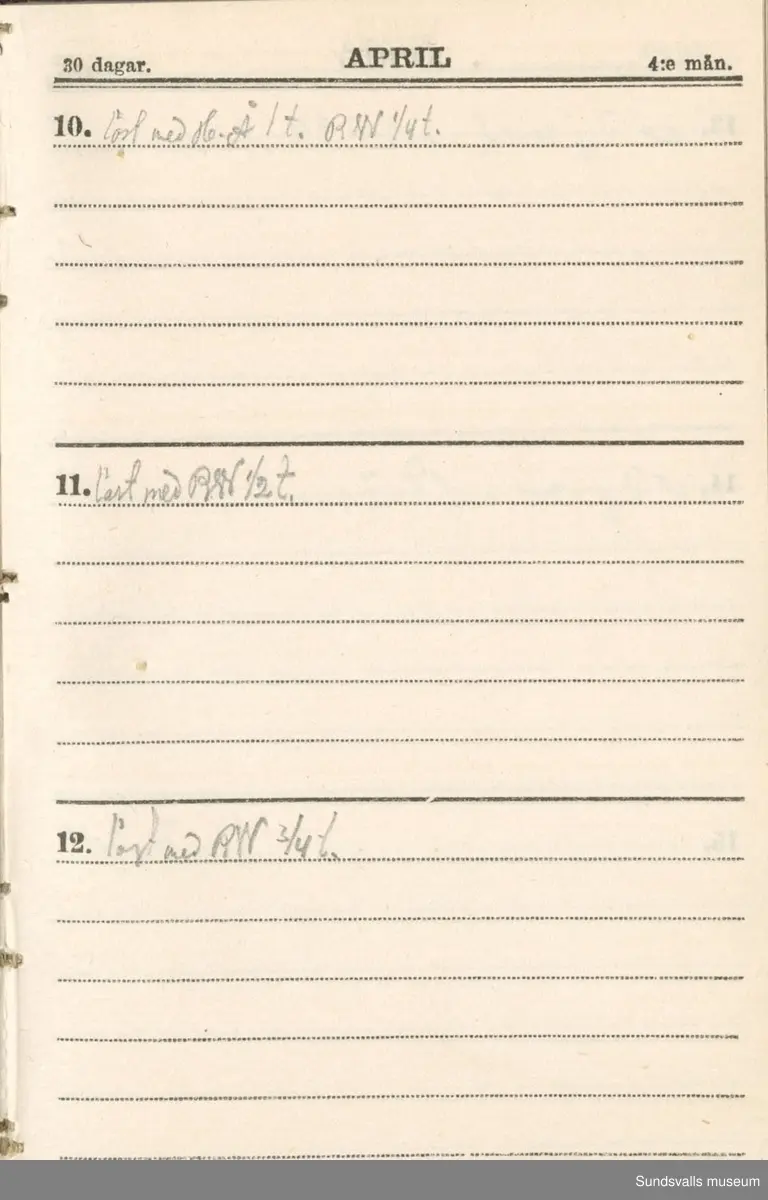 30 dagar. APRIL 4:e mån.
10. läst med H.Å 1 t. RW 1/4 t.
11. läst med RW 1/2 t.
12. läst med RW 3/4 t.
Sundsvalls museum